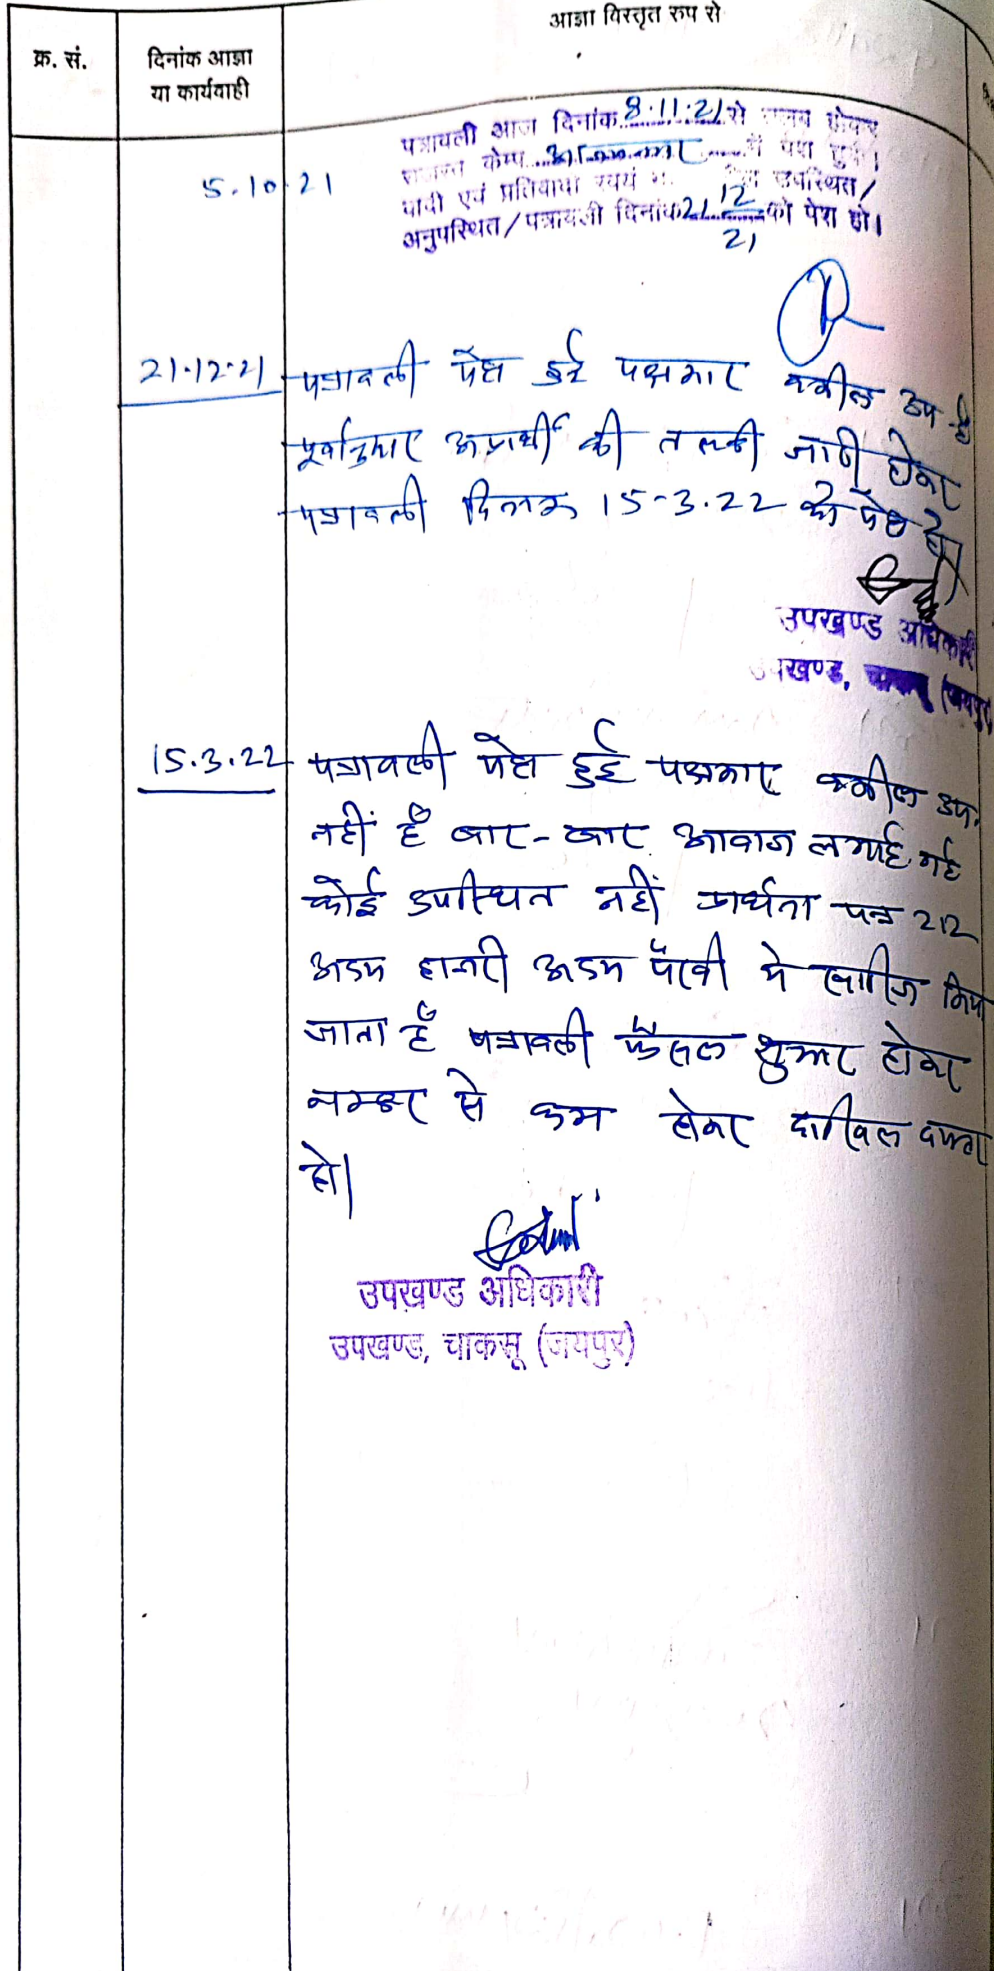 आज्ञा विस्तृत रुप से
क्र. सं.
दिनांक आज्ञा
या कार्यवाही
5.10.21
पत्रावली आज दिनांक 8.11.21 से तलब होकर
राजस्व केम्प में पेश हुई।
वादी एवं प्रतिवादी स्वयं उपस्थित/
अनुपस्थित/पत्रावली दिनांक 21 12/21 को पेश हो।
21.12.21
पत्रावली पेश हुई पक्षकार वकील उप है
पूर्वानुसार अप्रार्थी की तलबी जारी होकर
पत्रावली दिनांक 15-3.22 को पेश हो
उपखण्ड अधिकारी
उपखण्ड, चाकसू (जयपुर)
15.3.22
पत्रावली पेश हुई पक्षकार वकील उप.
नहीं है बार-बार आवाज लगाई गई
कोई उपस्थित नहीं प्रार्थना पत्र 212
अदम हाजरी अदम पैरवी मे खारिज किया
जाता है पत्रावली फैसल शुमार होकर
नम्बर से कम होकर दाखिल दफ्तर
हो।
उपखण्ड अधिकारी
उपखण्ड, चाकसू (जयपुर)